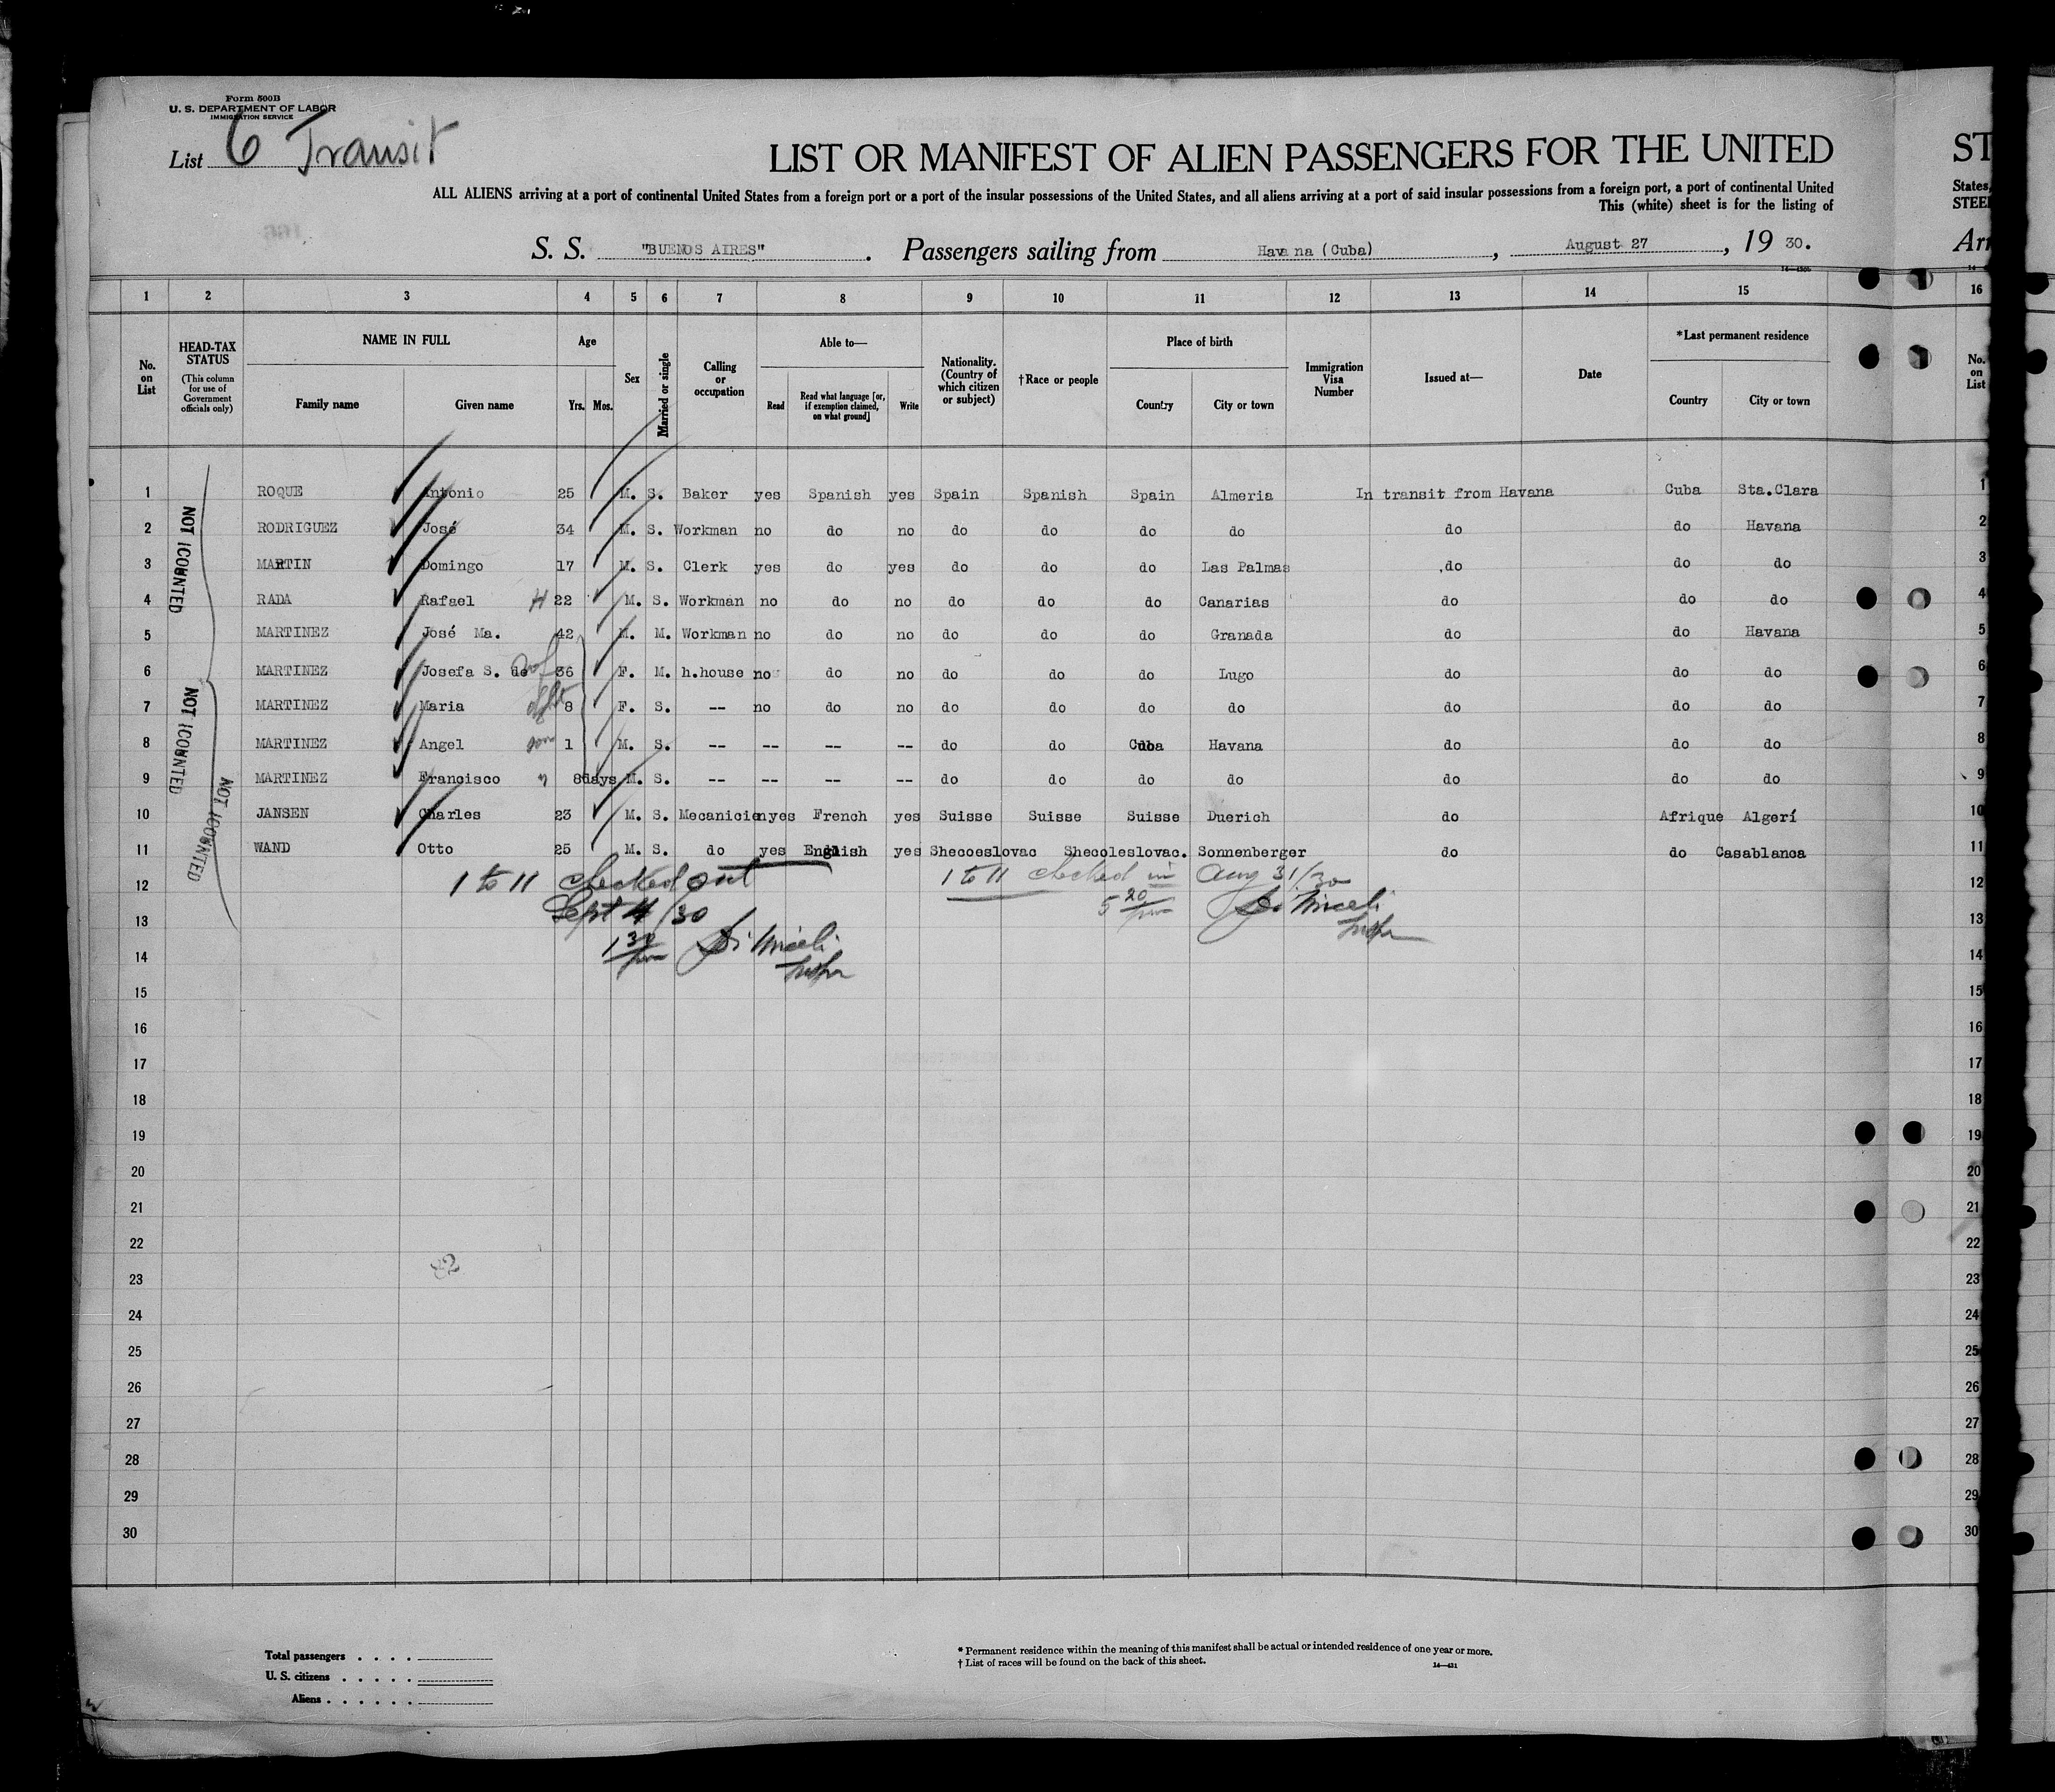 Form 500B
U. S. DEPARTMENT OF LABOR
IMMIGRATION SERVICE
List 6 Transit
LIST OR MANIFEST OF ALIEN PASSENGERS FOR THE UNITED
ALL ALIENS arriving at a port of continental United States from a foreign port or a port of the insular possessions of the United States, and all aliens arriving at a port of said insular possessions from a foreign port, a port of continental United
This (white) sheet is for the listing of
S. S. "BUENOS AIRES". Passengers sailing from Havana (Cuba), August 27, 19 30.
ST
States,
STEE
Arr
1 2 3 4 5 6 7 8 9 10 11 12 13 14 15 16
No. on List
HEAD-TAX STATUS (This column for use of Government officials only)
NAME IN FULL
Family name Given name
Age
Yrs. Mos.
Sex
Married or single
Calling or occupation
Able to—
Read Read what language [or, if exemption claimed, on what ground] Write
Nationality. (Country of which citizen or subject)
†Race or people
Place of birth
Country City or town
Immigration Visa Number
Issued at—
Date
*Last permanent residence
Country City or town
No. on List
1 ROQUE Antonio 25 M. S. Baker yes Spanish yes Spain Spanish Spain Almeria In transit from Havana Cuba Sta.Clara 1
2 RODRIGUEZ José 34 M. S. Workman no do no do do do do do do Havana 2
3 MARTIN Domingo 17 M. S. Clerk yes do yes do do do Las Palmas do do do 3
4 RADA Rafael 22 M. S. Workman no do no do do do Canarias do do do 4
5 MARTINEZ José Ma. 42 M. M. Workman no do no do do do Granada do do Havana 5
6 MARTINEZ Josefa S. de 36 F. M. h.house no do no do do do Lugo do do do 6
7 MARTINEZ Maria 8 F. S. -- no do no do do do do do do do 7
8 MARTINEZ Angel son 1 M. S. -- -- -- -- do do Cuba Havana do do do 8
9 MARTINEZ Francisco " 8days M. S. -- -- -- -- do do do do do do do 9
10 JANSEN Charles 23 M. S. Mecanicien yes French yes Suisse Suisse Suisse Duerich do Afrique Algerí 10
11 WAND Otto 25 M. S. do yes English yes Shecoeslovac Shecoleslovac. Sonnenberger do do Casablanca 11
NOT COUNTED
NOT COUNTED
NOT COUNTED
12 1 to 11 checked out 1 to 11 checked in Aug 31/30 12
13 Sept 4/30 5 20 pm 13
14 1 30 pm 14
15 15
16 16
17 17
18 18
19 19
20 20
21 21
22 22
23 23
24 24
25 25
26 26
27 27
28 28
29 29
30 30
Total passengers . . . .
U. S. citizens . . . . .
Aliens . . . . . .
* Permanent residence within the meaning of this manifest shall be actual or intended residence of one year or more.
† List of races will be found on the back of this sheet.
14—421